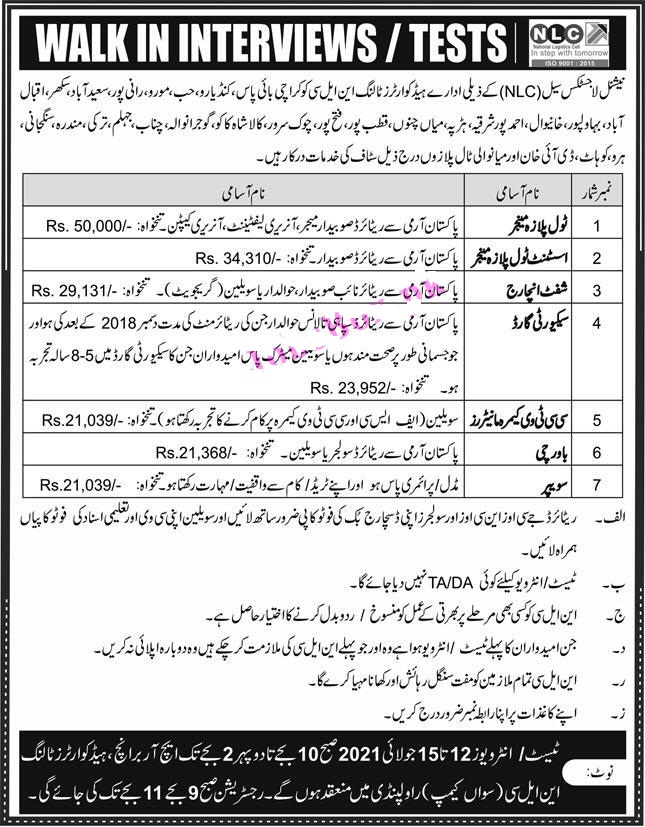 WALK IN INTERVIEWS / TESTS
NLC
National Logistics Cell
In step with tomorrow
ISO 9001 : 2015
نیشنل لاجسٹکس سیل (NLC) کے ذیلی ادارے ہیڈکوارٹرز ٹالنگ این ایل سی کو کراچی بائی پاس، کنڈیارو، حب، مورو، رانی پور، سعید آباد، سکھر، اقبال
آباد، بہاولپور، خانیوال، احمد پور شرقیہ، ہڑپہ، میاں چنوں، قطب پور، فتح پور، چوک سرور، کالا شاہ کاکو، گوجرانوالہ، چناب، جہلم، ترکی، مندرہ، سنگجانی،
ہرو، کوہاٹ، ڈی آئی خان اور میانوالی ٹال پلازوں درج ذیل سٹاف کی خدمات درکار ہیں۔
نمبر شمار نام آسامی نام آسامی
1 ٹول پلازہ منیجر پاکستان آرمی سے ریٹائرڈ صوبیدار میجر، آنریری لیفٹیننٹ، آنریری کیپٹن۔ تنخواہ: Rs. 50,000/-
2 اسسٹنٹ ٹول پلازہ منیجر پاکستان آرمی سے ریٹائرڈ صوبیدار۔ تنخواہ: Rs. 34,310/-
3 شفٹ انچارج پاکستان آرمی سے ریٹائر نائب صوبیدار، حوالدار یا سویلین (گریجویٹ)۔ تنخواہ: Rs. 29,131/-
4 سیکیورٹی گارڈ پاکستان آرمی سے ریٹائرڈ سپاہی تا لانس حوالدار جن کی ریٹائرمنٹ کی مدت دسمبر 2018 کے بعد کی ہو اور
جو جسمانی طور پر صحت مند ہوں یا سویلین میٹرک پاس امیدواران جن کا سیکیورٹی گارڈ میں 5-8 سالہ تجربہ
ہو۔ تنخواہ: Rs. 23,952/-
5 سی سی ٹی وی کیمرہ مانیٹرز سویلین (ایف ایس سی اور سی سی ٹی وی کیمرہ پر کام کرنے کا تجربہ رکھتا ہو)۔ تنخواہ: Rs.21,039/-
6 باورچی پاکستان آرمی سے ریٹائرڈ سولجر یا سویلین۔ تنخواہ: Rs.21,368/-
7 سویپر مڈل/پرائمری پاس ہو اور اپنے ٹریڈ/کام سے واقفیت/مہارت رکھتا ہو۔ تنخواہ: Rs.21,039/-
الف۔ ریٹائرڈ جے سی اوز، این سی اوز اور سولجرز اپنی ڈسچارج بُک کی فوٹو کاپی ضرور ساتھ لائیں اور سویلین اپنی سی وی اور تعلیمی اسناد کی فوٹو کاپیاں
ہمراہ لائیں۔
ب۔ ٹیسٹ/انٹرویو کیلئے کوئی TA/DA نہیں دیا جائے گا۔
ج۔ این ایل سی کو کسی بھی مرحلے پر بھرتی کے عمل کو منسوخ/ردوبدل کرنے کا اختیار حاصل ہے۔
د۔ جن امیدواران کا پہلے ٹیسٹ/انٹرویو ہوا ہے وہ اور جو پہلے این ایل سی کی ملازمت کر چکے ہیں وہ دوبارہ اپلائی نہ کریں۔
ر۔ این ایل سی تمام ملازمین کو مفت سنگل رہائش اور کھانا مہیا کرے گا۔
ز۔ اپنے کاغذات پر اپنا رابطہ نمبر ضرور درج کریں۔
نوٹ: ٹیسٹ/انٹرویوز 12 تا 15 جولائی 2021 صبح 10 بجے تا دوپہر 2 بجے تک ایچ آر برانچ، ہیڈکوارٹرز ٹالنگ
این ایل سی (سواں کیمپ) راولپنڈی میں منعقد ہوں گے۔ رجسٹریشن صبح 9 بجے 11 بجے تک کی جائے گی۔